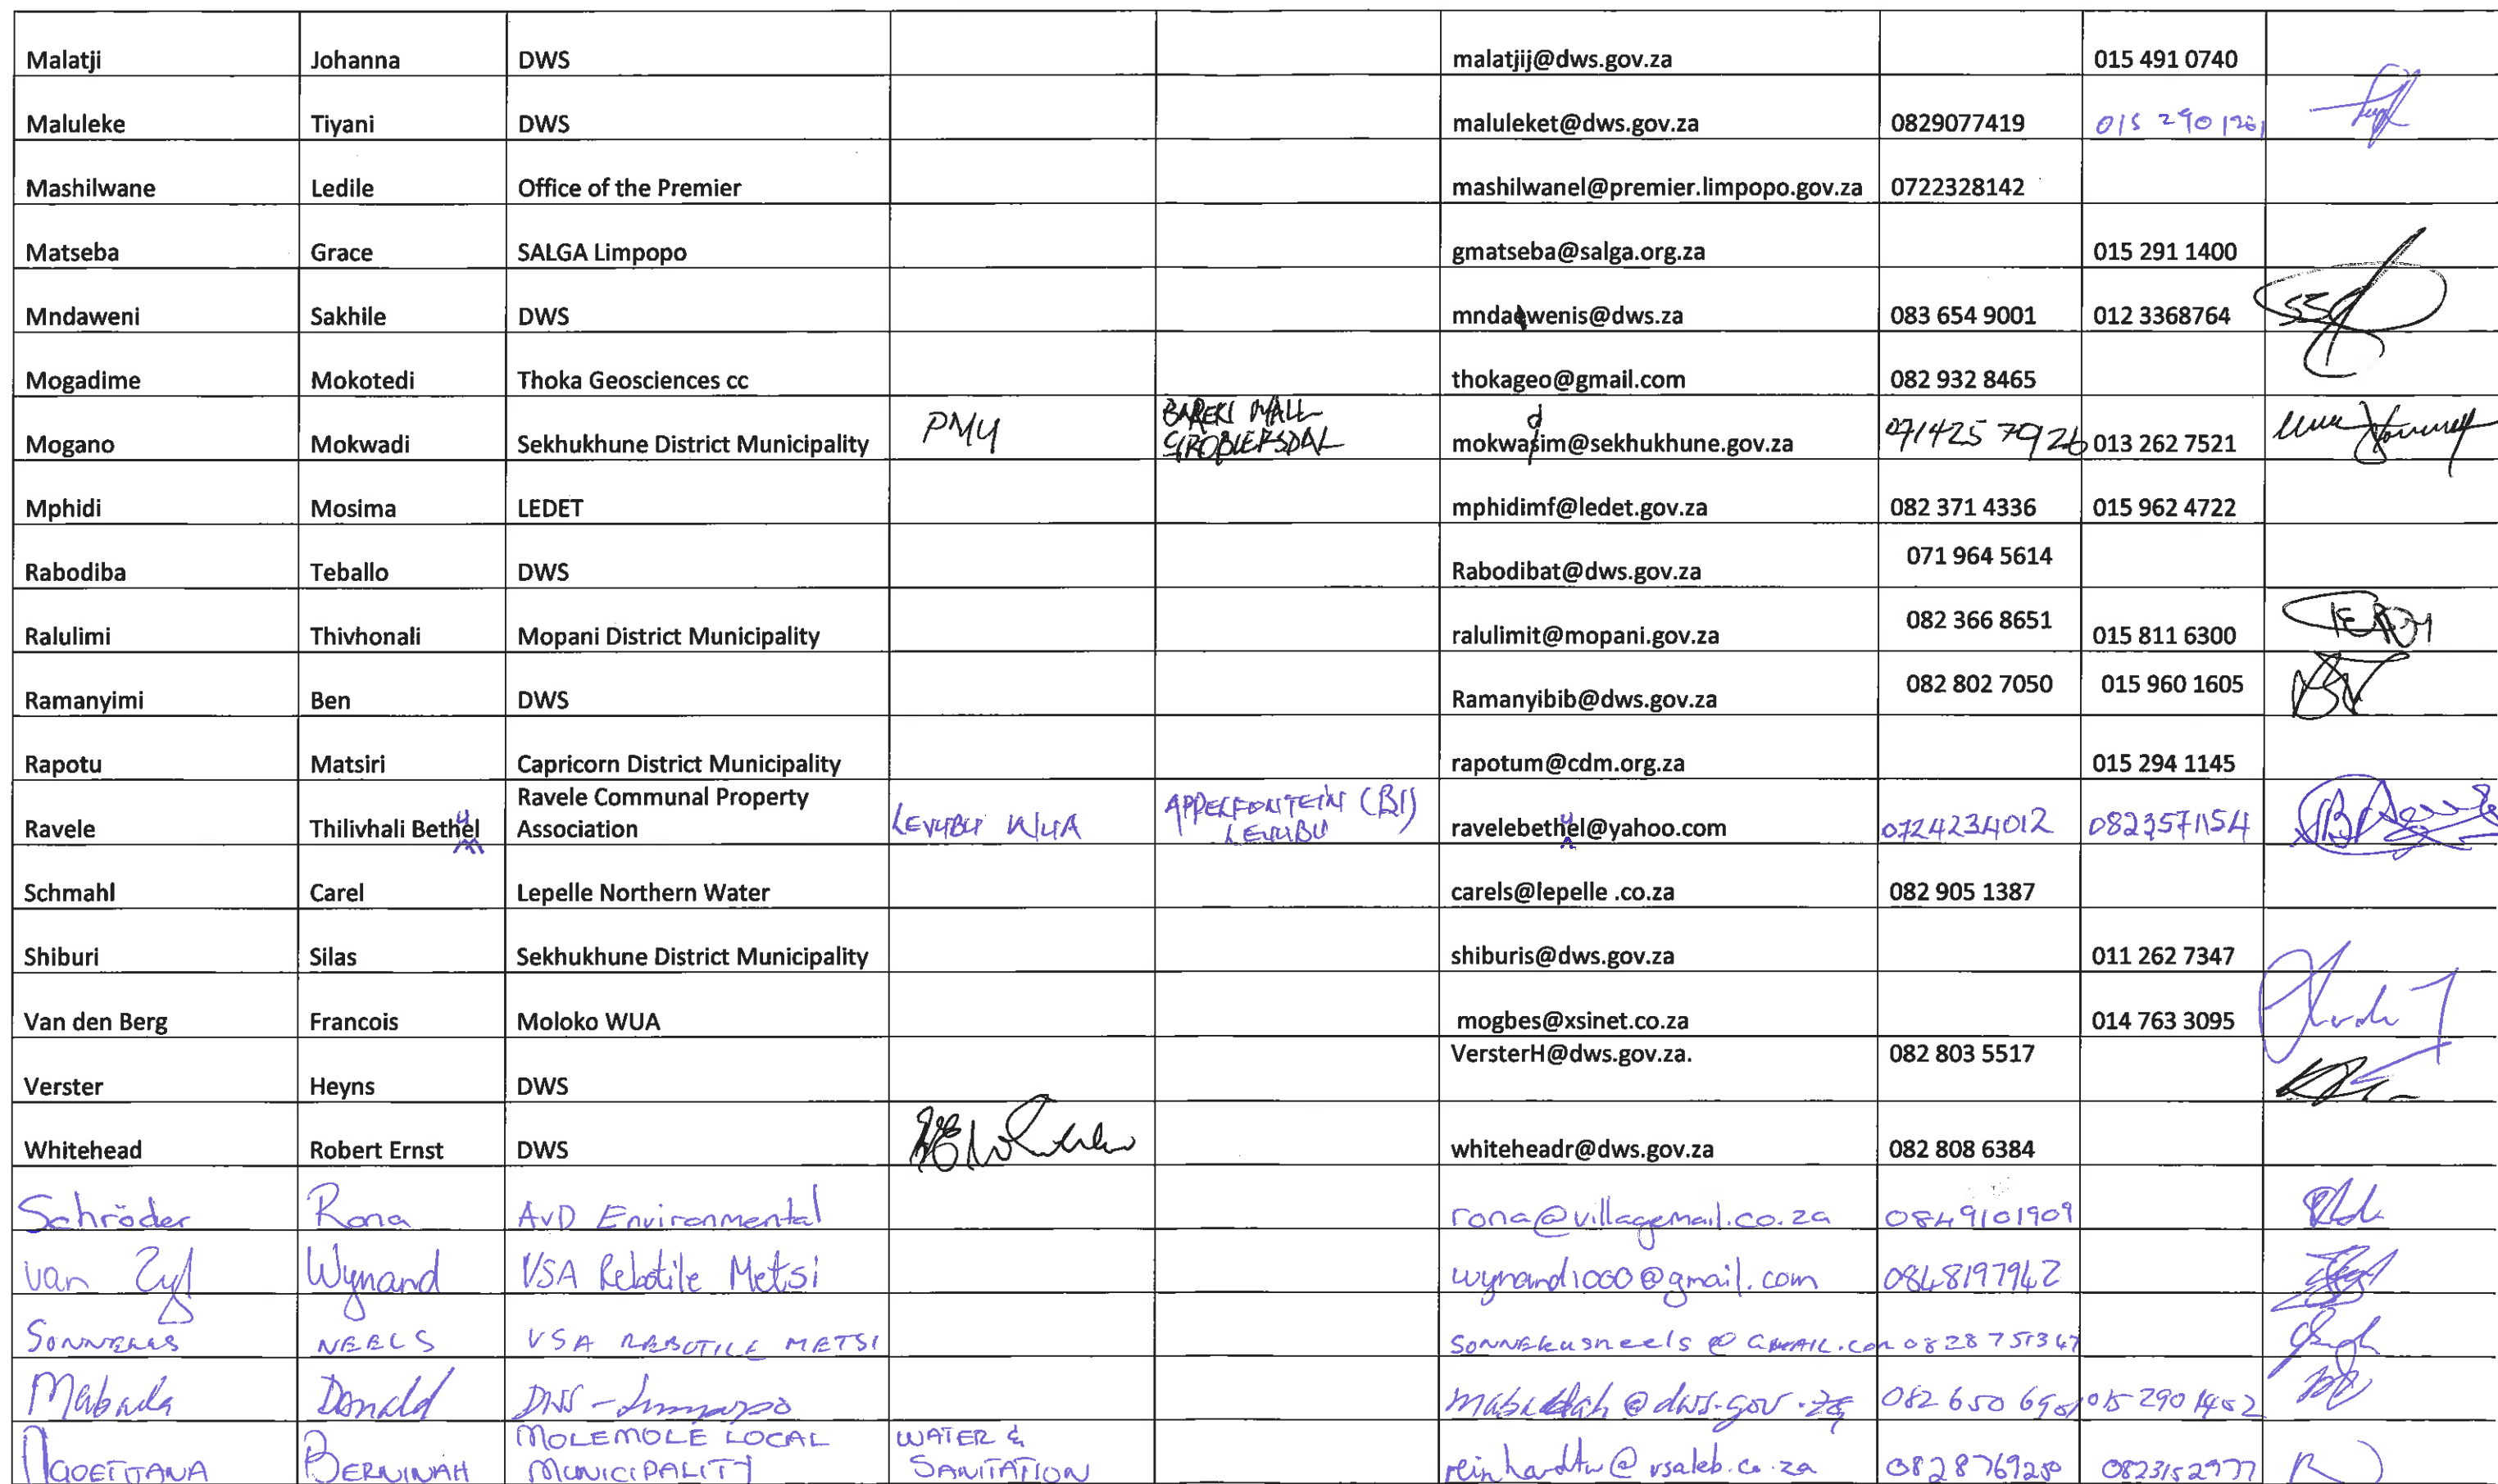 Malatji Johanna DWS malatjij@dws.gov.za 015 491 0740
Maluleke Tiyani DWS maluleket@dws.gov.za 0829077419 015 290 1261
Mashilwane Ledile Office of the Premier mashilwanel@premier.limpopo.gov.za 0722328142
Matseba Grace SALGA Limpopo gmatseba@salga.org.za 015 291 1400
Mndaweni Sakhile DWS mndawenis@dws.za 083 654 9001 012 3368764
Mogadime Mokotedi Thoka Geosciences cc thokageo@gmail.com 082 932 8465
Mogano Mokwadi Sekhukhune District Municipality PMU BAREKI MALL GROBLERSDAL mokwadim@sekhukhune.gov.za 071425 7926 013 262 7521
Mphidi Mosima LEDET mphidimf@ledet.gov.za 082 371 4336 015 962 4722
Rabodiba Teballo DWS Rabodibat@dws.gov.za 071 964 5614
Ralulimi Thivhonali Mopani District Municipality ralulimit@mopani.gov.za 082 366 8651 015 811 6300
Ramanyimi Ben DWS Ramanyibib@dws.gov.za 082 802 7050 015 960 1605
Rapotu Matsiri Capricorn District Municipality rapotum@cdm.org.za 015 294 1145
Ravele Thilivhali Bethuel Ravele Communal Property Association LEVUBU WUA APPELFONTEIN (B1) LEVUBU ravelebethuel@yahoo.com 0724234012 0823571154
Schmahl Carel Lepelle Northern Water carels@lepelle .co.za 082 905 1387
Shiburi Silas Sekhukhune District Municipality shiburis@dws.gov.za 011 262 7347
Van den Berg Francois Moloko WUA mogbes@xsinet.co.za 014 763 3095
Verster Heyns DWS VersterH@dws.gov.za. 082 803 5517
Whitehead Robert Ernst DWS whiteheadr@dws.gov.za 082 808 6384
Schröder Rona AvD Environmental rona@villagemail.co.za 0849101909
van Zyl Wynand VSA Rebotile Metsi wynand1000@gmail.com 0848197942
SONNEKUS NEELS VSA REBOTILE METSI SONNEkusneels@GMAIL.com 0828751347
Mabada Donald DWS - Limpopo 082 650 690 015 290 1452
BERNINAH MOLEMOLE LOCAL MUNICIPALITY WATER & SANITATION reinhardtw@vsaleb.co.za 0828769250 0823152977